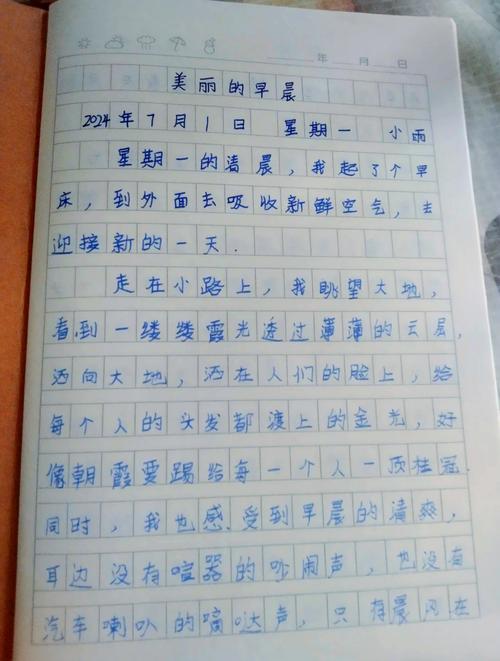 年 月 日
美丽的早晨
2024年7月1日 星期一 小雨
星期一的清晨，我起了个早
床，到外面去吸收新鲜空气，去
迎接新的一天.
走在小路上，我眺望大地，
看到一缕缕霞光透过薄薄的云层，
洒向大地，洒在人们的脸上，给
每个人的头发都渡上的金光，好
像朝霞要踢给每一个人一顶桂冠.
同时，我也感受到早晨的清爽，
耳边没有喧器的吵闹声，也没有
汽车喇叭的嘀哒声，只有晨风在